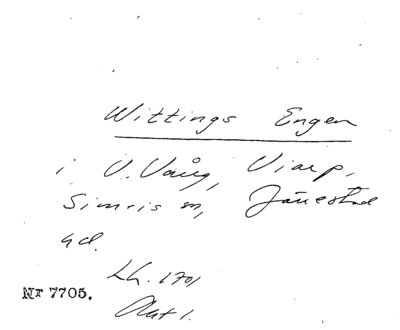 Wittings Engen
i V. Vång, Viarp,
Simris sn, Järrestad
hd.
Lh. 1701
Nr 7705.
Akt 1.